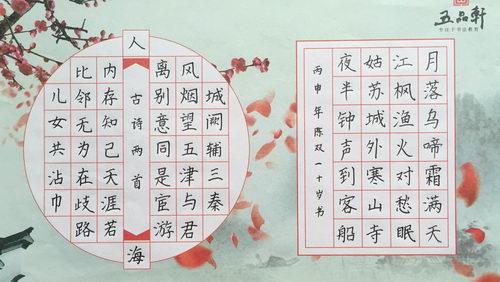 五品軒
专注于书法教育
月落乌啼霜满天
江枫渔火对愁眠
姑苏城外寒山寺
夜半钟声到客船
丙申年陈双一十岁书
城阙辅三秦
风烟望五津与君
离别意同是宦游
人
古诗两首
海
内存知己天涯若
比邻无为在歧路
儿女共沾巾